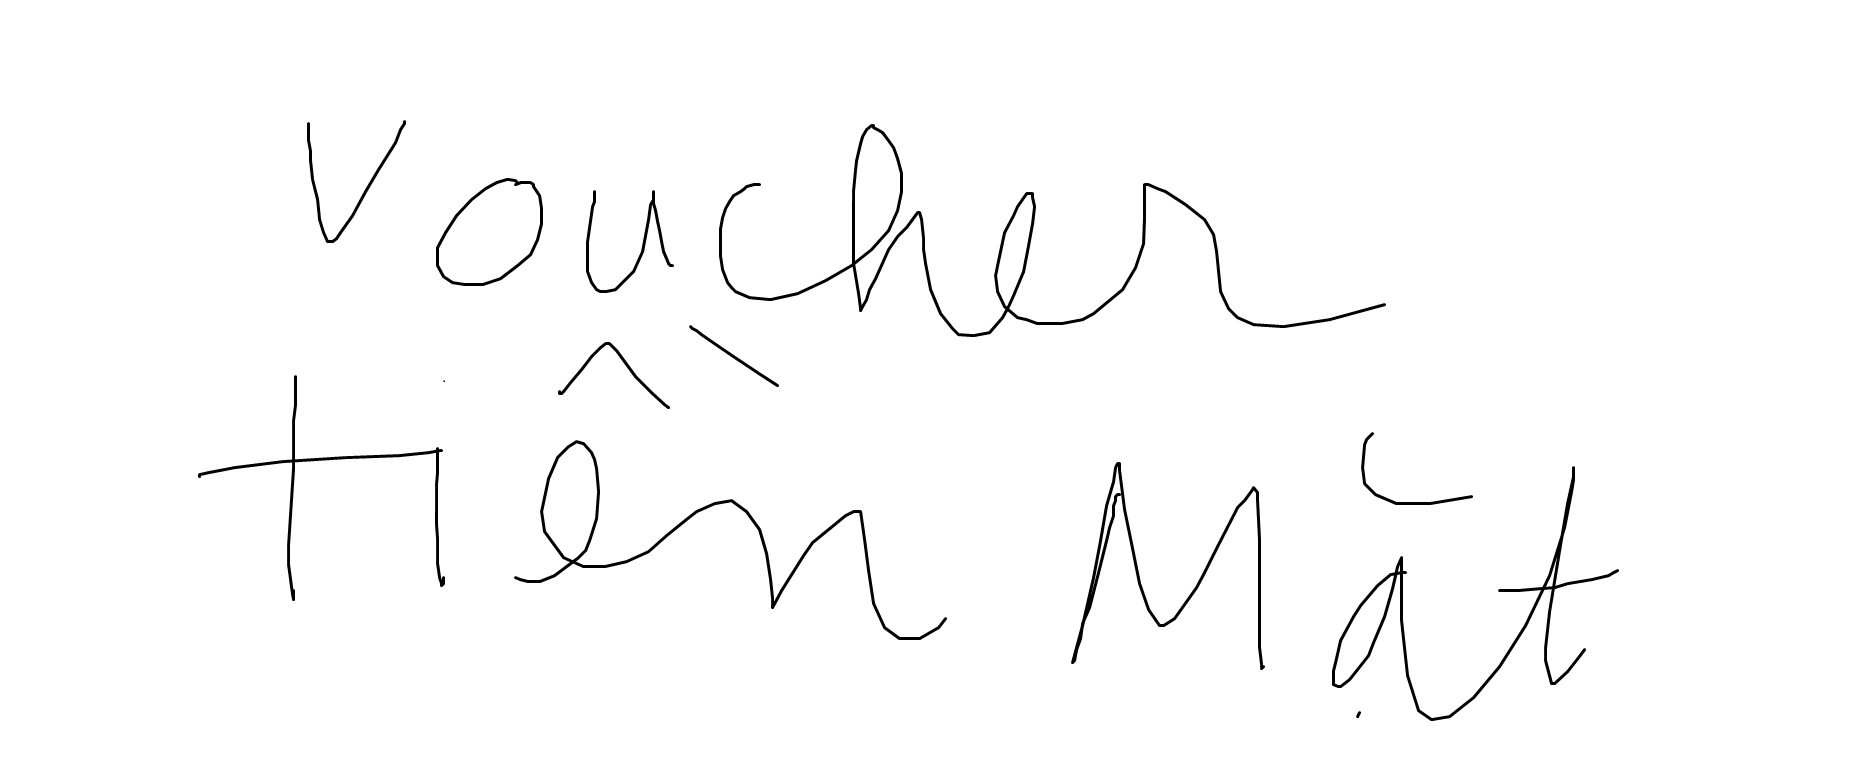 Voucher
Tiền Mặt